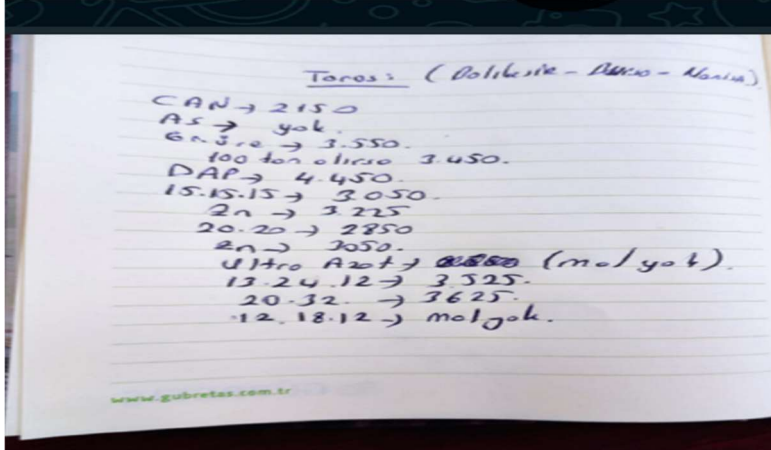 Toros: (Balıkesir - Bursa - Manisa)
CAN → 2150
AS → yok.
Gn üre → 3.550.
100 ton olursa 3.450.
DAP → 4.450.
15.15.15 → 3050.
Zn → 3.225
20.20 → 2850
Zn → 3050.
Ultra Azot → (mal yok).
13.24.12 → 3.525.
20.32. → 3625.
12.18.12 → mal yok.
www.gubretas.com.tr